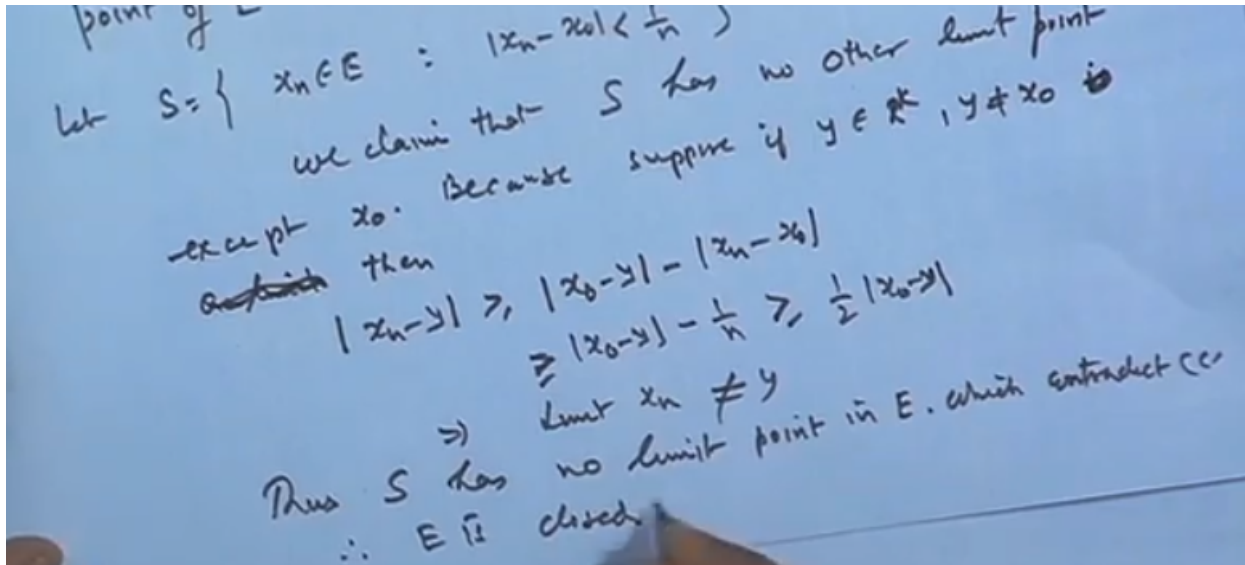 point of
Let S = { xn ∈ E : |xn - x0| < 1/n }
we claim that S has no other limit point
except x0. Because suppose if y ∈ R^k, y ≠ x0
then
|xn - y| ≥ |x0 - y| - |xn - x0|
≥ |x0 - y| - 1/n ≥ 1/2 |x0 - y|
⇒ Limit xn ≠ y
Thus S has no limit point in E. which contradict (c)
∴ E is closed